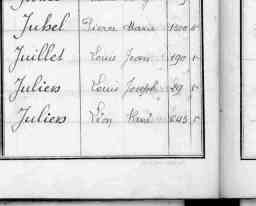 Juhel Pierre Marie 1300 v
Juillet Louis Jean 190 v
Juliers Louis Joseph 89 v
Juliers Léon René 643 v